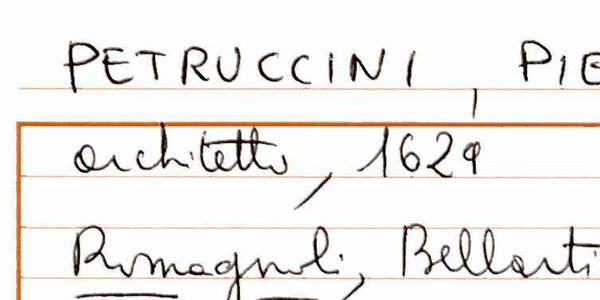 PETRUCCINI, PIE
architetto, 1629
Romagnoli, Bellarti